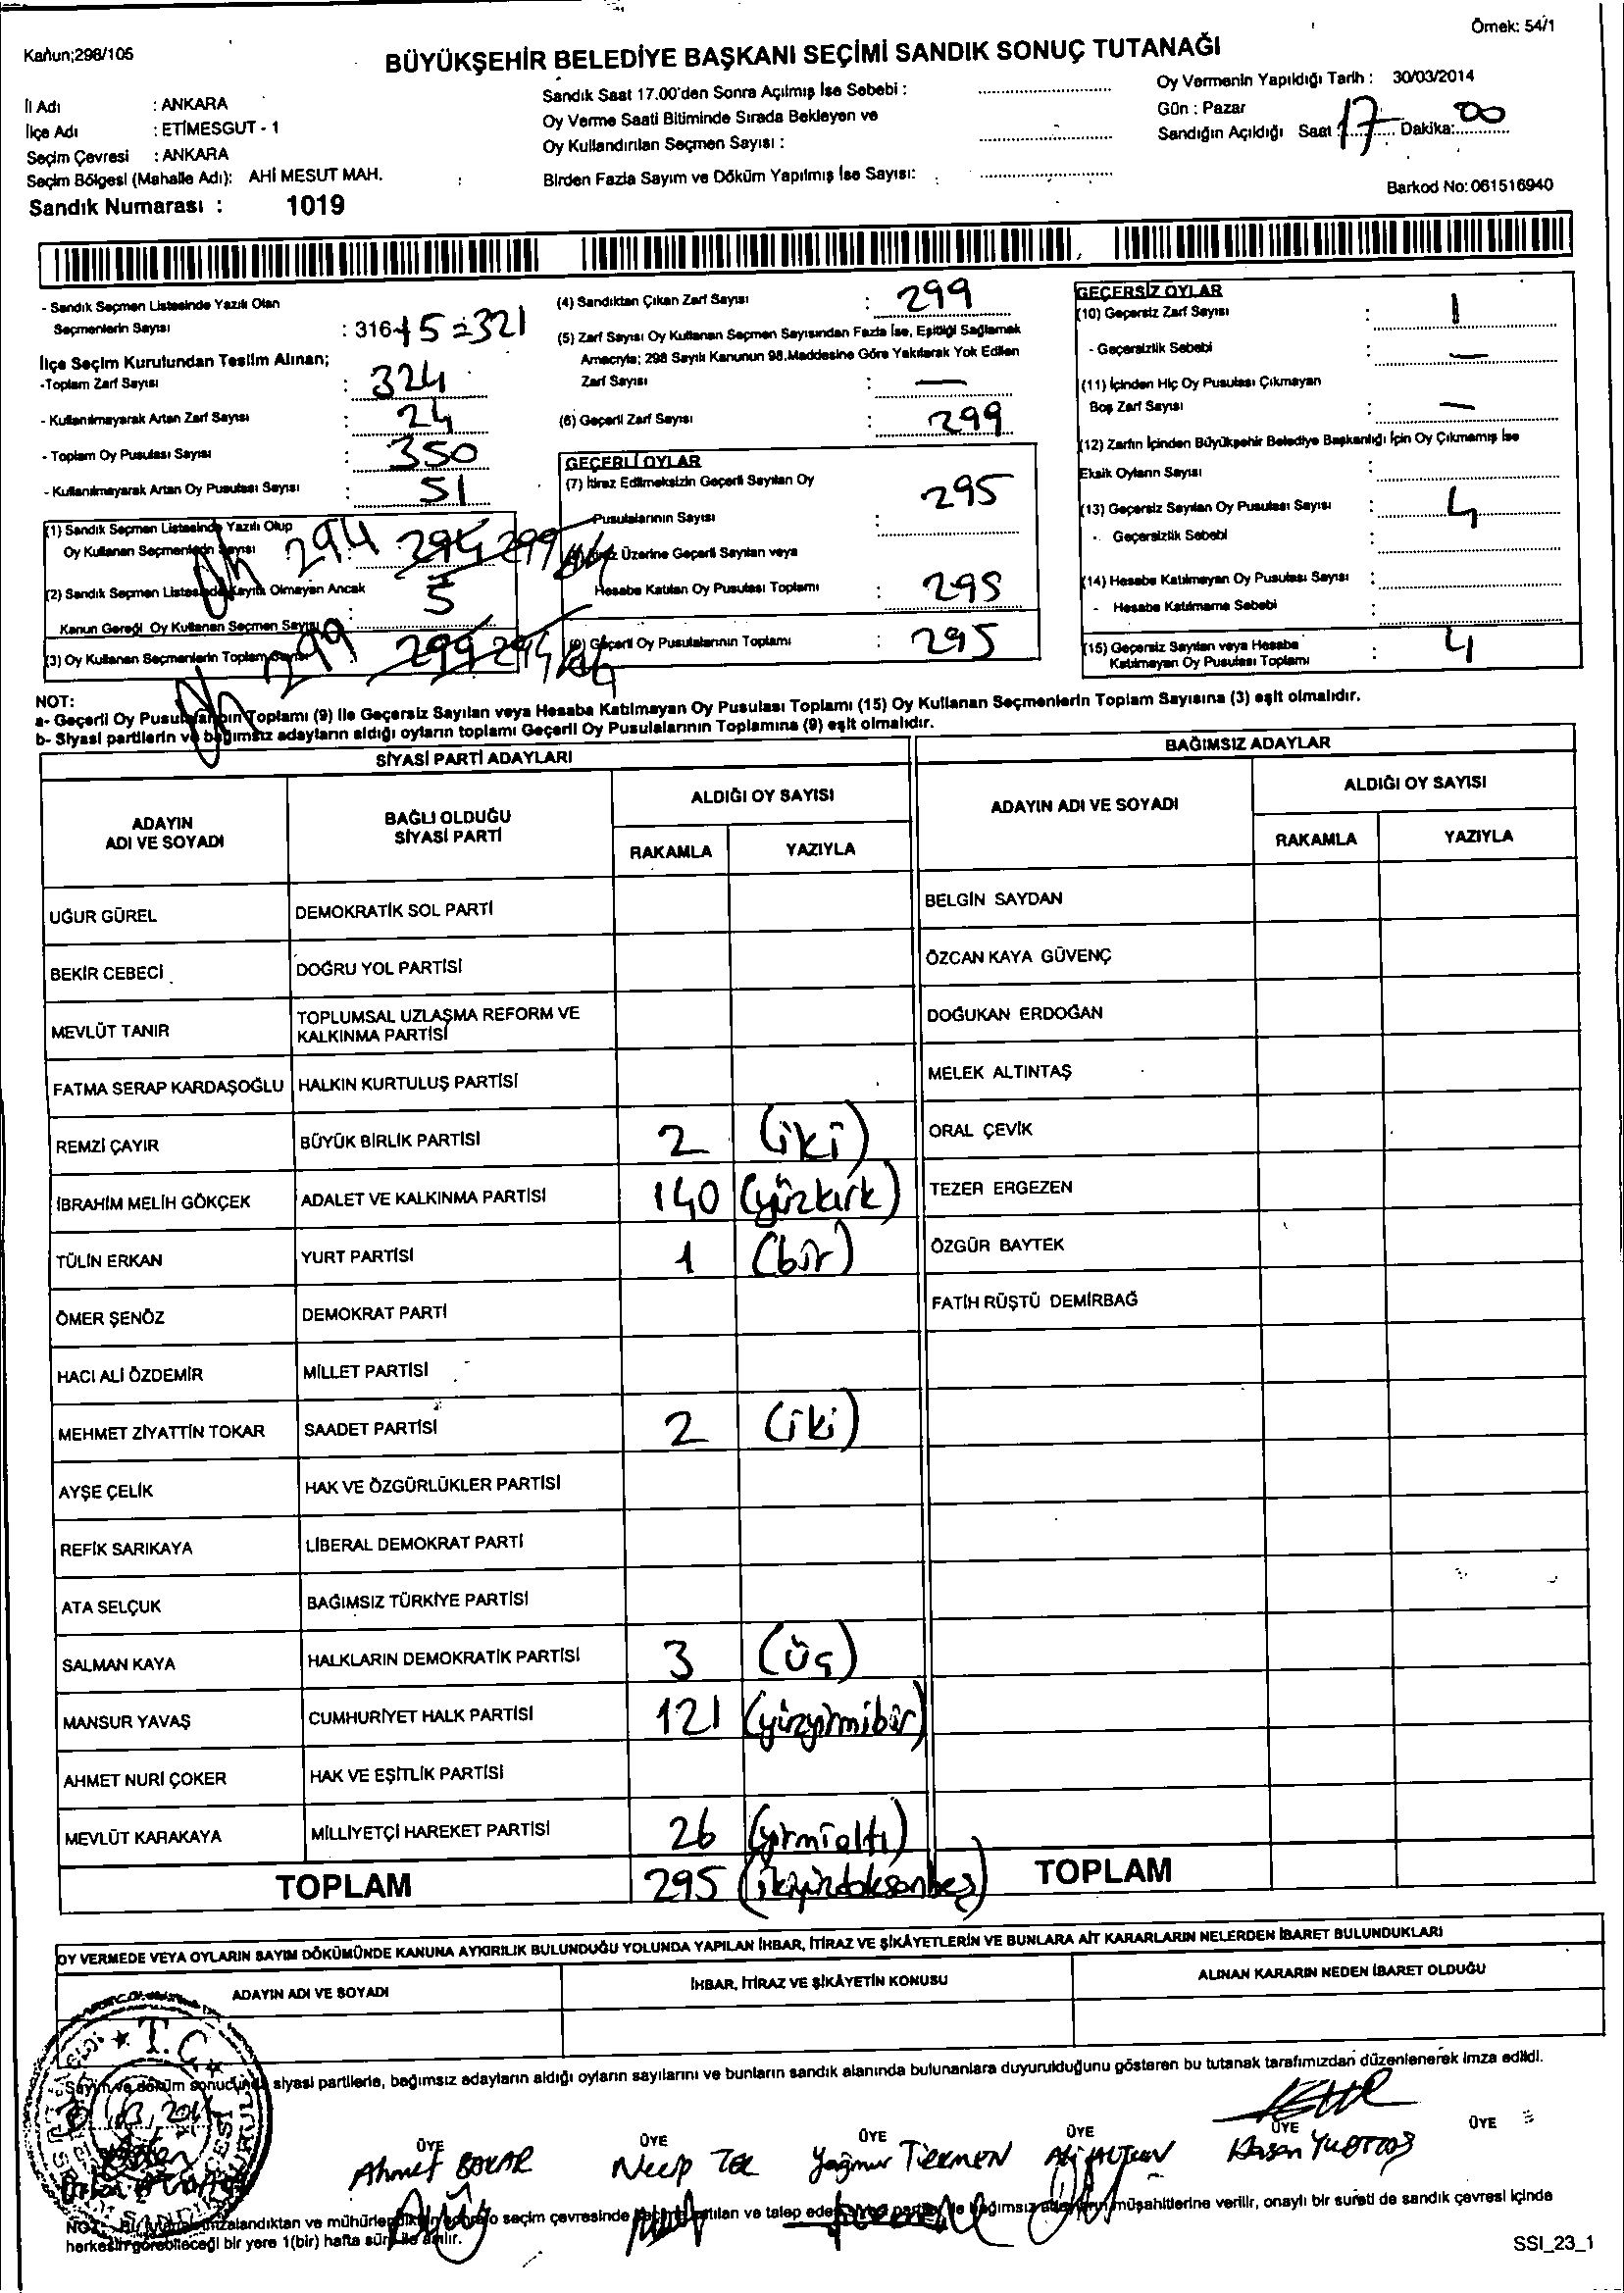 Örnek: 54/1
Kanun;298/105
BÜYÜKŞEHİR BELEDİYE BAŞKANI SEÇİMİ SANDIK SONUÇ TUTANAĞI
İl Adı : ANKARA
İlçe Adı : ETİMESGUT - 1
Seçim Çevresi : ANKARA
Seçim Bölgesi (Mahalle Adı): AHİ MESUT MAH.
Sandık Numarası : 1019
Sandık Saat 17.00'den Sonra Açılmış İse Sebebi :
Oy Verme Saati Bitiminde Sırada Bekleyen ve
Oy Kullandırılan Seçmen Sayısı :
Birden Fazla Sayım ve Döküm Yapılmış İse Sayısı:
Oy Vermenin Yapıldığı Tarih : 30/03/2014
Gün : Pazar
Sandığın Açıldığı Saat : 17 Dakika: 00
Barkod No: 061516940
- Sandık Seçmen Listesinde Yazılı Olan
Seçmenlerin Sayısı : 316+5=321
İlçe Seçim Kurulundan Teslim Alınan;
-Toplam Zarf Sayısı : 324
- Kullanılmayarak Artan Zarf Sayısı : 24
- Toplam Oy Pusulası Sayısı : 350
- Kullanılmayarak Artan Oy Pusulası Sayısı : 51
(1) Sandık Seçmen Listesinde Yazılı Olup
Oy Kullanan Seçmenlerin Sayısı 294 294 299
(2) Sandık Seçmen Listesinde Kayıtlı Olmayan Ancak
Kanun Gereği Oy Kullanan Seçmen Sayısı : 5
(3) Oy Kullanan Seçmenlerin Toplam Sayısı 299 299 294
(4) Sandıktan Çıkan Zarf Sayısı : 299
(5) Zarf Sayısı Oy Kullanan Seçmen Sayısından Fazla İse, Eşitliği Sağlamak
Amacıyla; 298 Sayılı Kanunun 98.Maddesine Göre Yakılarak Yok Edilen
Zarf Sayısı : —
(6) Geçerli Zarf Sayısı : 299
GEÇERLİ OYLAR
(7) İtiraz Edilmeksizin Geçerli Sayılan Oy
Pusulalarının Sayısı : 295
(8) İtiraz Üzerine Geçerli Sayılan veya
Hesaba Katılan Oy Pusulası Toplamı : 295
(9) Geçerli Oy Pusulalarının Toplamı : 295
GEÇERSİZ OYLAR
(10) Geçersiz Zarf Sayısı : 1
- Geçersizlik Sebebi : —
(11) İçinden Hiç Oy Pusulası Çıkmayan
Boş Zarf Sayısı : —
(12) Zarfın İçinden Büyükşehir Belediye Başkanlığı İçin Oy Çıkmamış İse
Eksik Oyların Sayısı :
(13) Geçersiz Sayılan Oy Pusulası Sayısı : 4
- Geçersizlik Sebebi :
(14) Hesaba Katılmayan Oy Pusulası Sayısı :
- Hesaba Katılmama Sebebi :
(15) Geçersiz Sayılan veya Hesaba
Katılmayan Oy Pusulası Toplamı : 4
NOT:
a- Geçerli Oy Pusulalarının Toplamı (9) ile Geçersiz Sayılan veya Hesaba Katılmayan Oy Pusulası Toplamı (15) Oy Kullanan Seçmenlerin Toplam Sayısına (3) eşit olmalıdır.
b- Siyasi partilerin ve bağımsız adayların aldığı oyların toplamı Geçerli Oy Pusulalarının Toplamına (9) eşit olmalıdır.
SİYASİ PARTİ ADAYLARI
ADAYIN ADI VE SOYADI
BAĞLI OLDUĞU SİYASİ PARTİ
ALDIĞI OY SAYISI
RAKAMLA YAZIYLA
UĞUR GÜREL DEMOKRATİK SOL PARTİ
BEKİR CEBECİ DOĞRU YOL PARTİSİ
MEVLÜT TANIR TOPLUMSAL UZLAŞMA REFORM VE
KALKINMA PARTİSİ
FATMA SERAP KARDAŞOĞLU HALKIN KURTULUŞ PARTİSİ
REMZİ ÇAYIR BÜYÜK BİRLİK PARTİSİ 2 (iki)
İBRAHİM MELİH GÖKÇEK ADALET VE KALKINMA PARTİSİ 140 (yüzkırk)
TÜLİN ERKAN YURT PARTİSİ 1 (bir)
ÖMER ŞENÖZ DEMOKRAT PARTİ
HACI ALİ ÖZDEMİR MİLLET PARTİSİ
MEHMET ZİYATTİN TOKAR SAADET PARTİSİ 2 (iki)
AYŞE ÇELİK HAK VE ÖZGÜRLÜKLER PARTİSİ
REFİK SARIKAYA LİBERAL DEMOKRAT PARTİ
ATA SELÇUK BAĞIMSIZ TÜRKİYE PARTİSİ
SALMAN KAYA HALKLARIN DEMOKRATİK PARTİSİ 3 (üç)
MANSUR YAVAŞ CUMHURİYET HALK PARTİSİ 121 (yüzyirmibir)
AHMET NURİ ÇOKER HAK VE EŞİTLİK PARTİSİ
MEVLÜT KARAKAYA MİLLİYETÇİ HAREKET PARTİSİ 26 (yirmialtı)
TOPLAM 295 (ikiyüzdoksanbeş)
BAĞIMSIZ ADAYLAR
ADAYIN ADI VE SOYADI
ALDIĞI OY SAYISI
RAKAMLA YAZIYLA
BELGİN SAYDAN
ÖZCAN KAYA GÜVENÇ
DOĞUKAN ERDOĞAN
MELEK ALTINTAŞ
ORAL ÇEVİK
TEZER ERGEZEN
ÖZGÜR BAYTEK
FATİH RÜŞTÜ DEMİRBAĞ
TOPLAM
OY VERMEDE VEYA OYLARIN SAYIM DÖKÜMÜNDE KANUNA AYKIRILIK BULUNDUĞU YOLUNDA YAPILAN İHBAR, İTİRAZ VE ŞİKÂYETLERİN VE BUNLARA AİT KARARLARIN NELERDEN İBARET BULUNDUKLARI
ADAYIN ADI VE SOYADI
İHBAR, İTİRAZ VE ŞİKÂYETİN KONUSU
ALINAN KARARIN NEDEN İBARET OLDUĞU
T.C.
Sayım ve döküm sonucunda siyasi partilerle, bağımsız adayların aldığı oyların sayılarını ve bunların sandık alanında bulunanlara duyurulduğunu gösteren bu tutanak tarafımızdan düzenlenerek imza edildi.
ÜYE ÜYE ÜYE ÜYE ÜYE ÜYE
Ahmet Necip Yağmur
herkesin görebileceği bir yere 1(bir) hafta süre ile asılır.
SSI_23_1